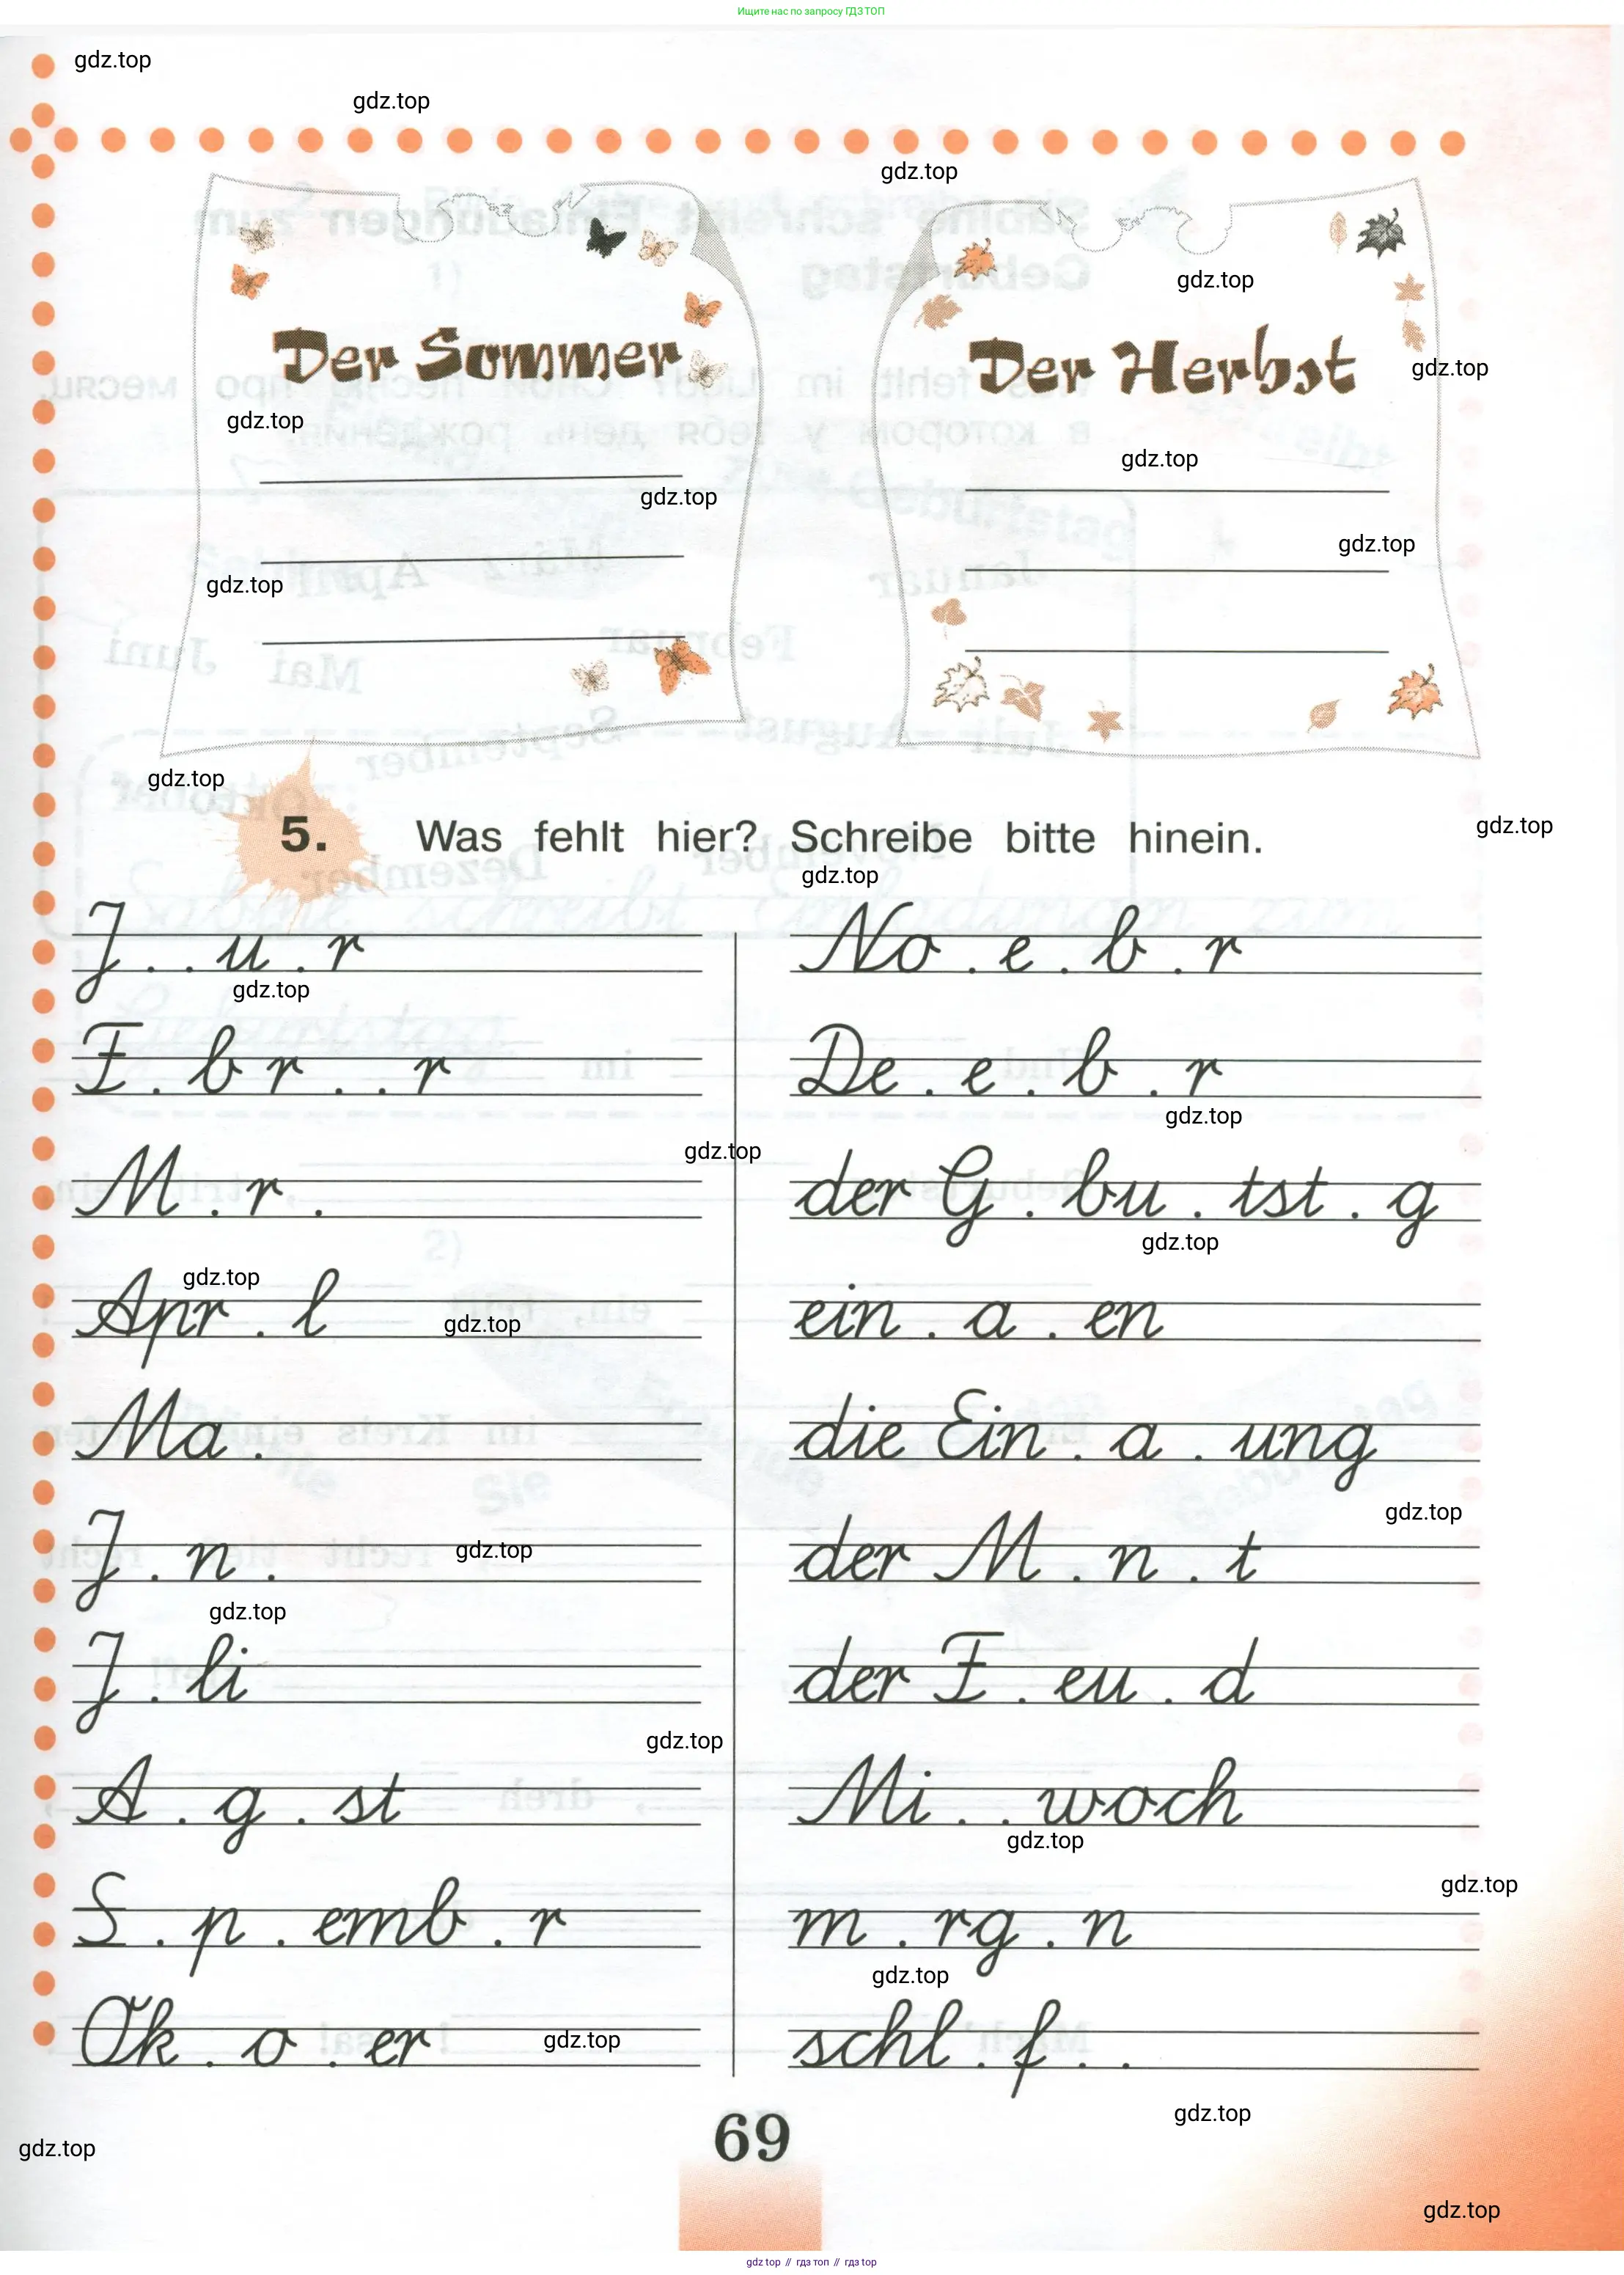 Ищите нас по запросу ГДЗ ТОП
gdz.top
gdz.top
gdz.top
gdz.top
Der Sommer
Der Herbst
gdz.top
gdz.top
gdz.top
gdz.top
gdz.top
gdz.top
gdz.top
5. Was fehlt hier? Schreibe bitte hinein.
gdz.top
gdz.top
J . . u . r
No . e . b . r
gdz.top
F . b r . . r
De . e . b . r
gdz.top
gdz.top
M . r .
der G . bu . tst . g
gdz.top
gdz.top
Apr . l
ein . a . en
gdz.top
Ma .
die Ein . a . ung
gdz.top
J . n .
der M . n . t
gdz.top
gdz.top
J . li
der F . eu . d
gdz.top
A . g . st
Mi . . woch
gdz.top
gdz.top
S . p . emb . r
m . rg . n
gdz.top
Ok . o . er
schl . f . .
gdz.top
gdz.top
69
gdz.top
gdz.top
gdz top // гдз топ // гдз top